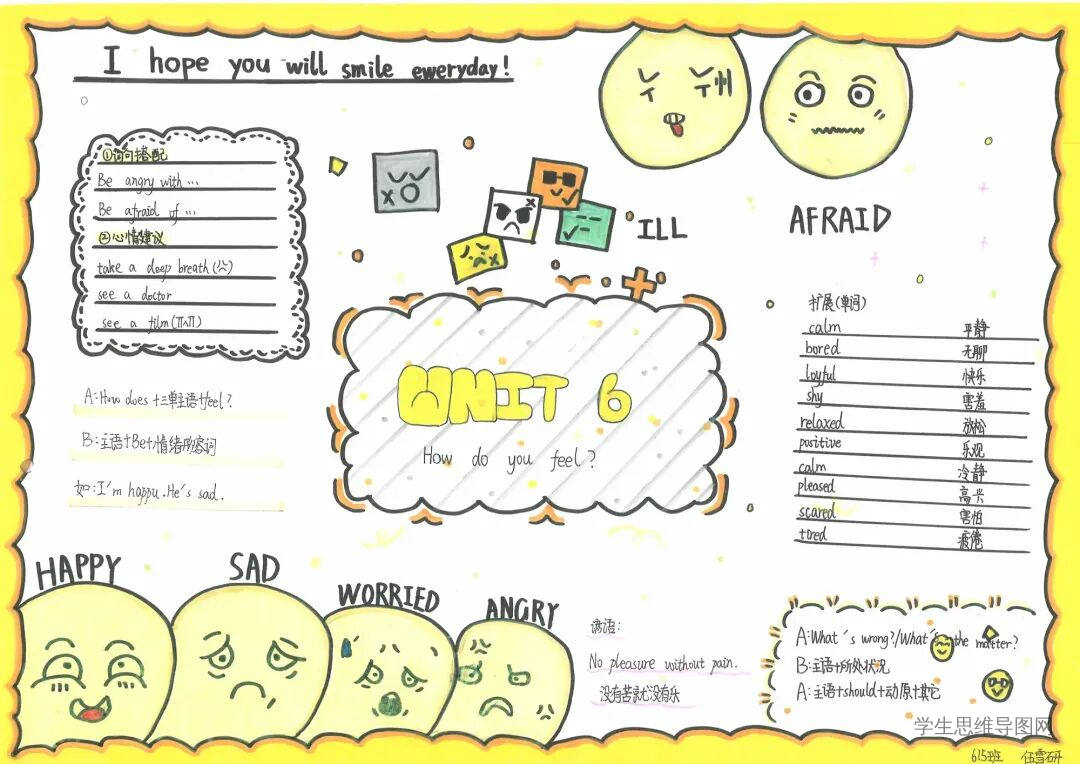 I hope you will smile eweryday!
①词句搭配
Be angry with …
Be afraid of …
②心情建议
take a deep breath(公)
see a doctor
see a film
A:How does +三单主语+feel?
B:主语+Be+情绪形容词
如:I'm happy.He's sad.
ILL
AFRAID
UNIT 6
How do you feel?
扩展(单词)
calm 平静
bored 无聊
joyful 快乐
shy 害羞
relaxed 放松
positive 乐观
calm 冷静
pleased 高兴
scared 害怕
tired 疲倦
HAPPY
SAD
WORRIED
ANGRY
谚语:
No pleasure without pain.
没有苦就没有乐
A:What's wrong?/What's the matter?
B:主语+所处状况
A:主语+should+动原+其它
学生思维导图网
615班 伍雪研